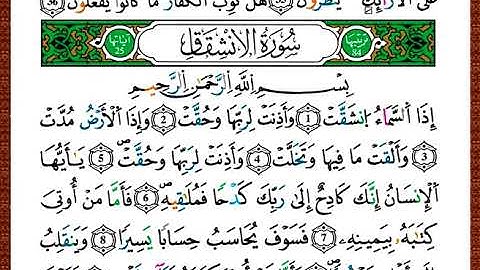 عَلَى ٱلْأَرَآئِكِ يَنظُرُونَ ٣٥ هَلْ ثُوِّبَ ٱلْكُفَّارُ مَا كَانُوا۟ يَفْعَلُونَ ٣٦
ترتيبها 84 سُورَةُ الِانْشِقَاقِ آياتها 25
بِسْمِ ٱللَّهِ ٱلرَّحْمَٰنِ ٱلرَّحِيمِ
إِذَا ٱلسَّمَآءُ ٱنشَقَّتْ ١ وَأَذِنَتْ لِرَبِّهَا وَحُقَّتْ ٢ وَإِذَا ٱلْأَرْضُ مُدَّتْ
٣ وَأَلْقَتْ مَا فِيهَا وَتَخَلَّتْ ٤ وَأَذِنَتْ لِرَبِّهَا وَحُقَّتْ ٥ يَٰٓأَيُّهَا
ٱلْإِنسَٰنُ إِنَّكَ كَادِحٌ إِلَىٰ رَبِّكَ كَدْحًا فَمُلَٰقِيهِ ٦ فَأَمَّا مَنْ أُوتِىَ
كِتَٰبَهُۥ بِيَمِينِهِۦ ٧ فَسَوْفَ يُحَاسَبُ حِسَابًا يَسِيرًا ٨ وَيَنقَلِبُ